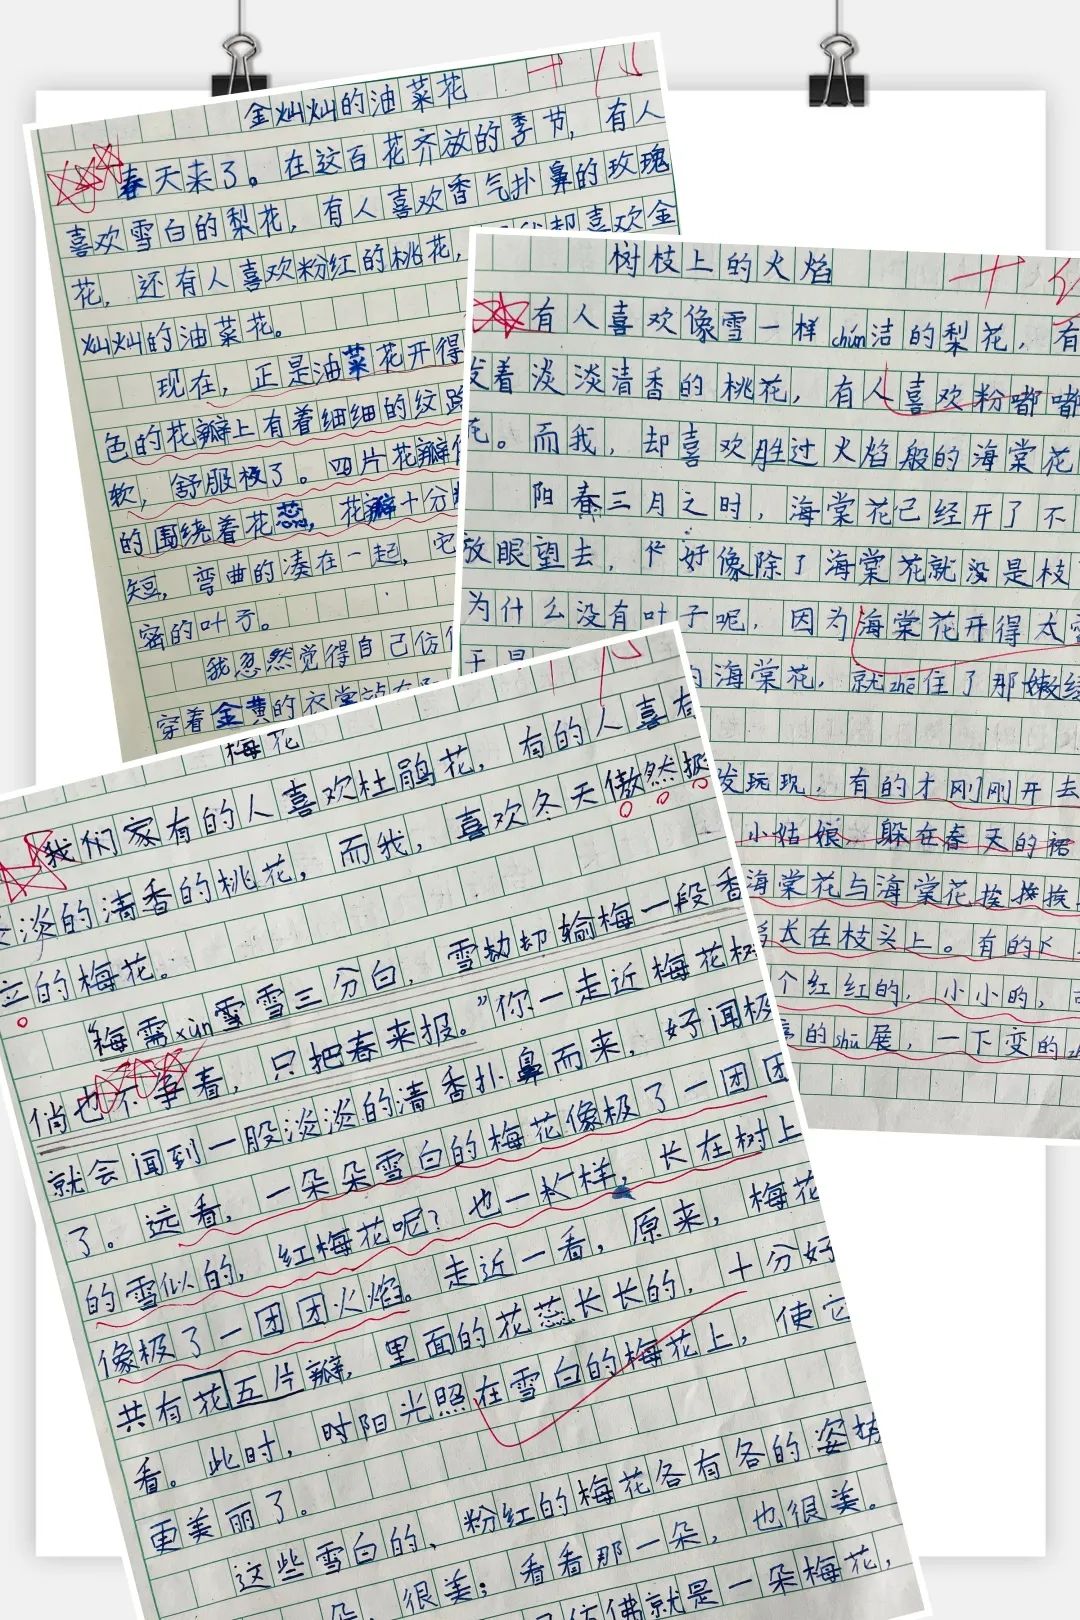 金灿灿的油菜花
春天来了。在这百花齐放的季节,有人
喜欢雪白的梨花,有人喜欢香气扑鼻的玫瑰
花,还有人喜欢粉红的桃花,
喜欢金
灿灿的油菜花。
现在,正是油菜花开得
色的花瓣上有着细细的纹路
软,舒服极了。四片花瓣
的围绕着花蕊,花瓣十分
短,弯曲的凑在一起,它
密的叶子。
我忽然觉得自己仿
穿着金黄的衣裳站在
树枝上的火焰
有人喜欢像雪一样chún洁的梨花,有
发着淡淡清香的桃花,有人喜欢粉嘟嘟
花。而我,却喜欢胜过火焰般的海棠花
阳春三月之时,海棠花已经开了不
放眼望去,好像除了海棠花就没是枝
为什么没有叶子呢,因为海棠花开得太
于是
的海棠花,就zhē住了那嫩绿
发玩现,有的才刚刚开去
小姑娘,躲在春天的裙
海棠花与海棠花挨挨挨
长在枝头上。有的
个红红的,小小的,
的shū展,一下变的
梅花
我们家有的人喜欢杜鹃花,有的人喜
淡的清香的桃花,而我,喜欢冬天傲然挺
立的梅花。
梅需xùn雪雪三分白,雪劫却输梅一段香
俏也不争春,只把春来报。”你一走近梅花树
就会闻到一股淡淡的清香扑鼻而来,好闻极
了。远看,一朵朵雪白的梅花像极了一团团
的雪似的,红梅花呢?也一样,长在树上
像极了一团团火焰。走近一看,原来,梅花
共有花五片瓣,里面的花蕊长长的,十分好
看。此时,时阳光照在雪白的梅花上,使它
更美丽了。
这些雪白的、粉红的梅花各有各的姿势
朵,很美;看看那一朵,也很美。
仿佛就是一朵梅花,